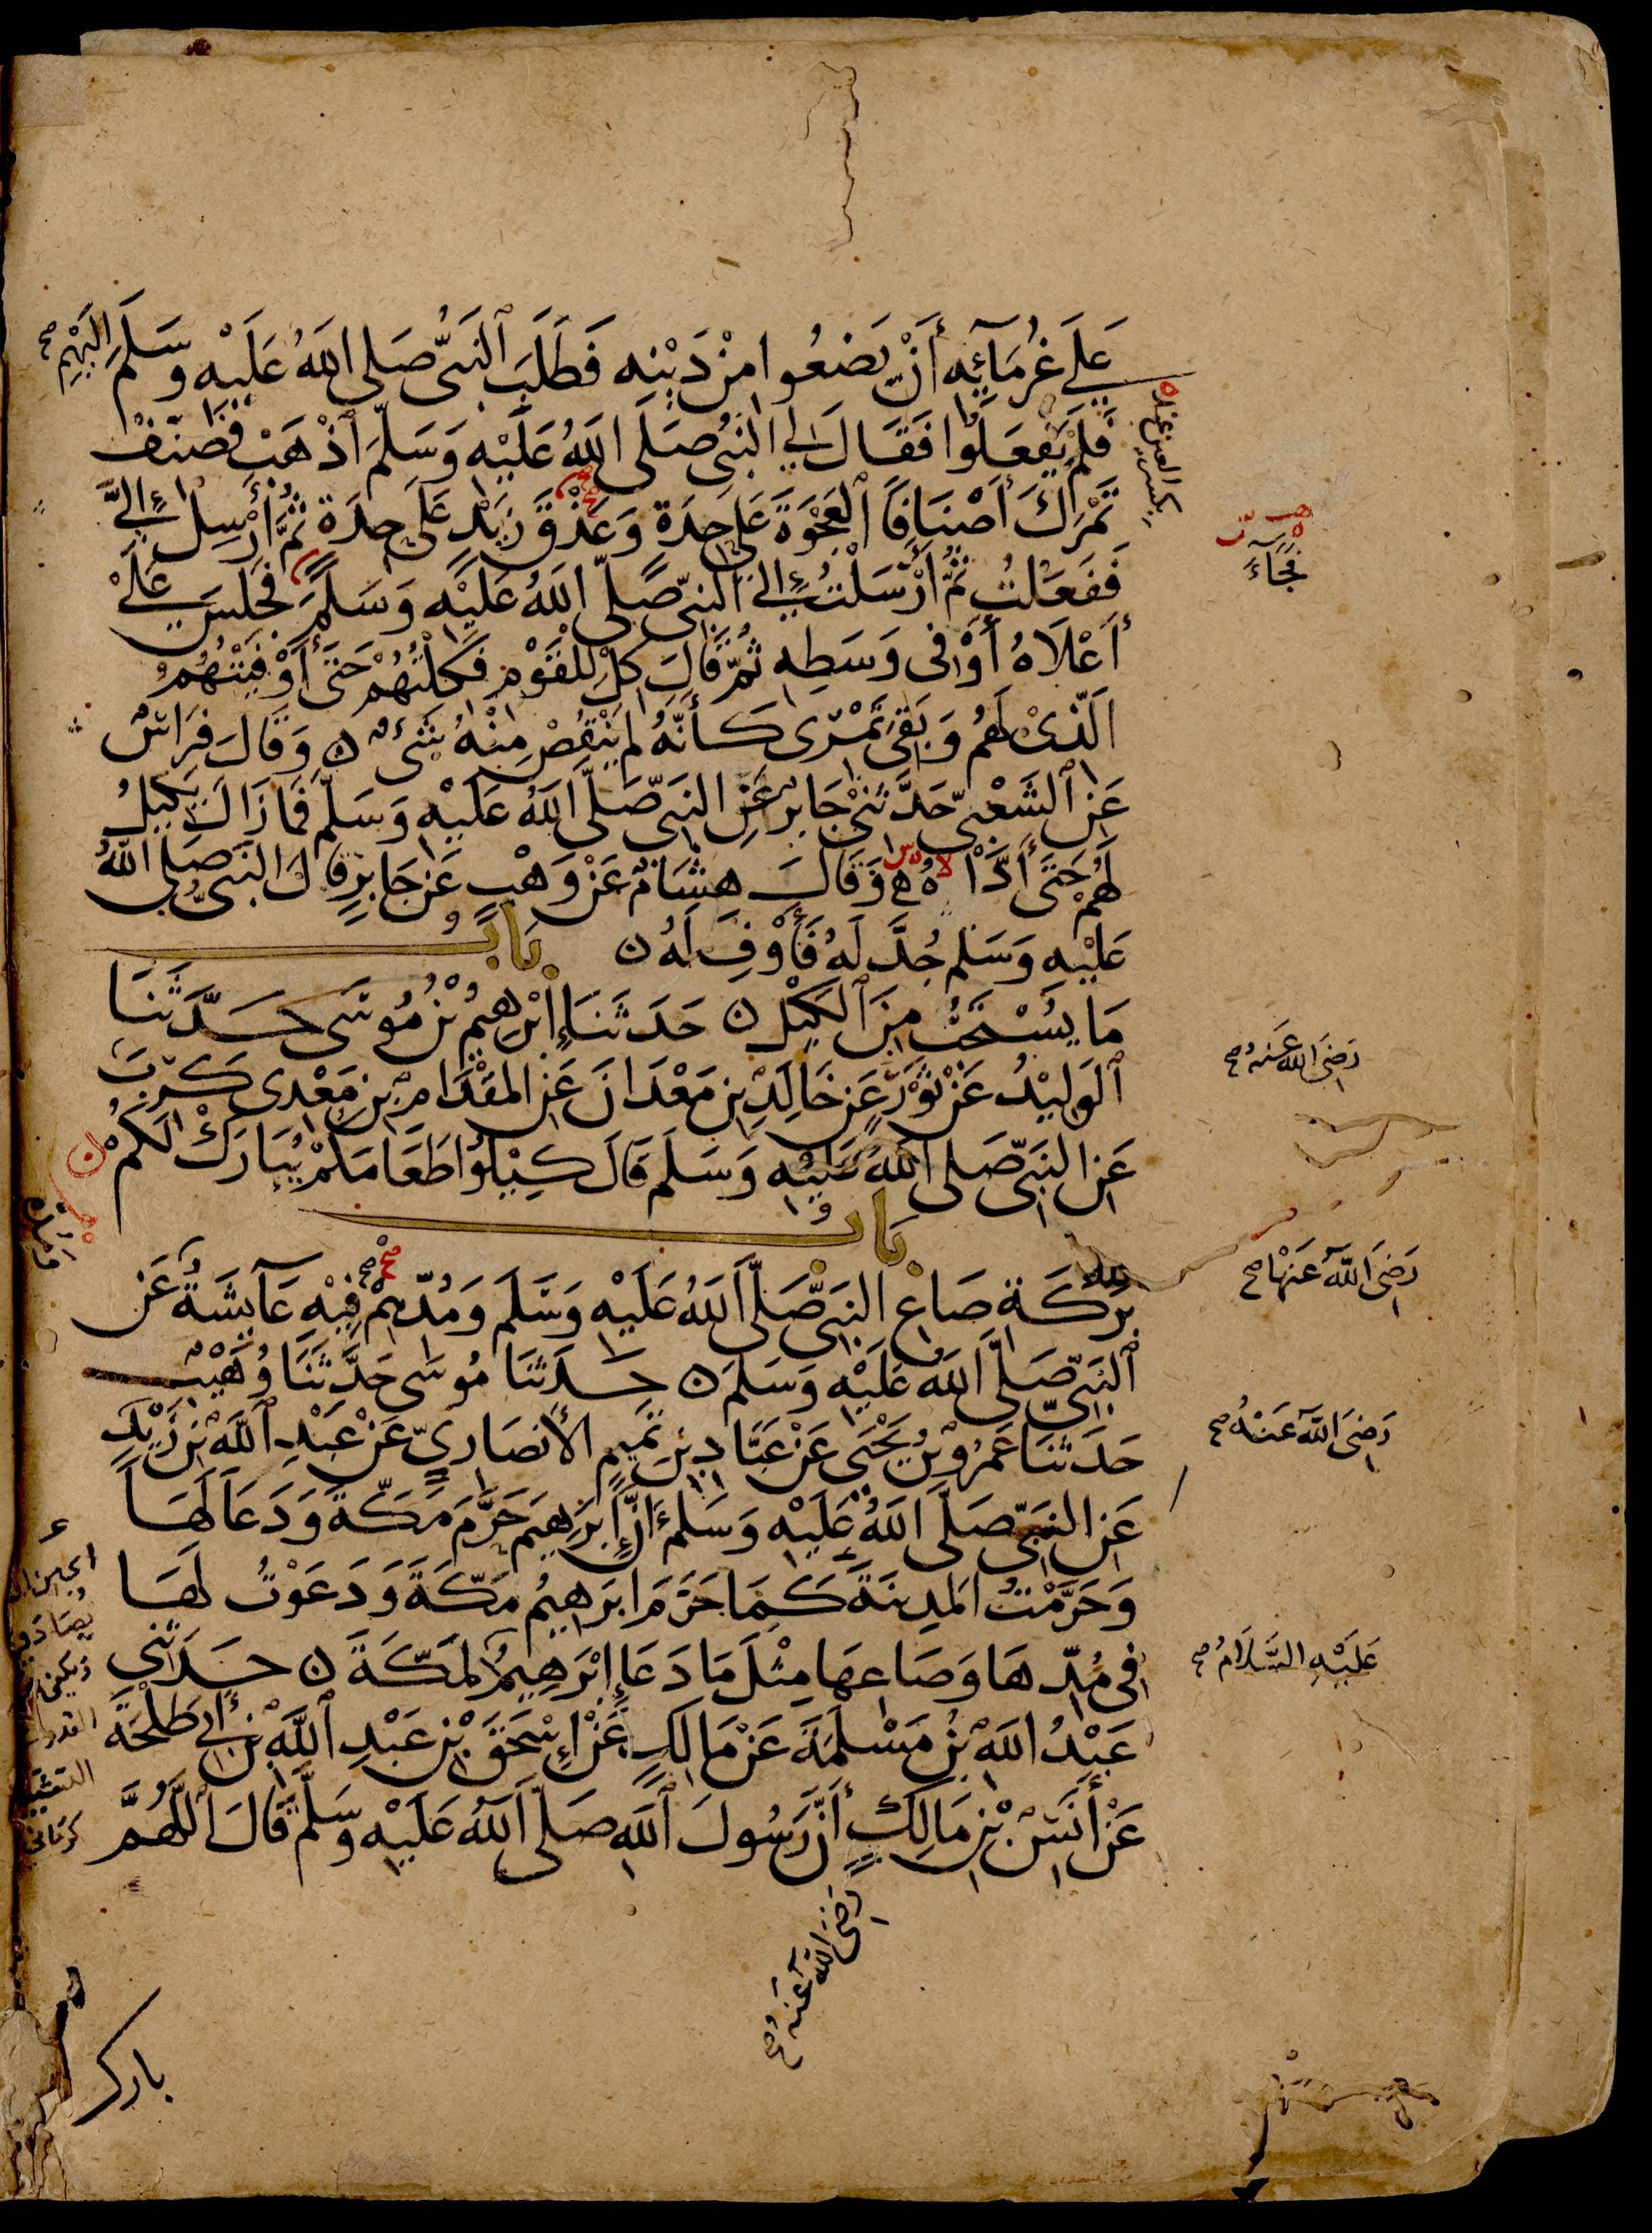 عَلَى غُرَمَآئِهِ أَنْ يَضَعُوا مِنْ دَيْنِهِ فَطَلَبَ ٱلنَّبِىُّ صَلَّى اللَّهُ عَلَيْهِ وَسَلَّمَ إِلَيْهِمْ صح
فَلَمْ يَفْعَلُوا فَقَالَ لِي النَّبِىُّ صَلَّى اللَّهُ عَلَيْهِ وَسَلَّمَ ٱذْهَبْ فَصَنِّفْ
تَمْرَكَ أَصْنَافًا ٱلْعَجْوَةَ عَلَى حِدَةٍ وَعَذْقَ زَيْدٍ عَلَى حِدَةٍ ثُمَّ أَرْسِلْ إِلَيَّ
فَفَعَلْتُ ثُمَّ أَرْسَلْتُ إِلَى النَّبِىِّ صَلَّى اللَّهُ عَلَيْهِ وَسَلَّمَ فَجَلَسَ عَلَى
أَعْلَاهُ أَوْ فِى وَسَطِهِ ثُمَّ قَالَ كِلْ لِلْقَوْمِ فَكِلْتُهُمْ حَتَّى أَوْفَيْتُهُمُ
ٱلَّذِىْ لَهُمْ وَبَقِىَ تَمْرِى كَأَنَّهُ لَمْ يَنْقُصْ مِنْهُ شَىْءٌ ن وَقَالَ فِرَاسٌ
عَنِ ٱلشَّعْبِىِّ حَدَّثَنِىْ جَابِرٌ عَنِ النَّبِىِّ صَلَّى اللَّهُ عَلَيْهِ وَسَلَّمَ فَمَا زَالَ يَكِيلُ
لَهُمْ حَتَّى أَدَّاهُ وَقَالَ هِشَامٌ عَنْ وَهْبٍ عَنْ جَابِرٍ قَالَ النَّبِىُّ صَلَّى اللَّهُ
عَلَيْهِ وَسَلَّمَ جُدَّ لَهُ فَأَوْفِ لَهُ ن بَابُ
مَا يُسْتَحَبُّ مِنَ ٱلْكَيْلِ ن حَدَّثَنَا إِبْرٰهِيمُ بْنُ مُوسَى حَدَّثَنَا
ٱلْوَلِيْدُ عَنْ ثَوْرٍ عَنْ خَالِدِ بْنِ مَعْدَانَ عَنِ الْمِقْدَامِ بْنِ مَعْدِى كَرِبَ
عَنِ النَّبِىِّ صَلَّى اللَّهُ عَلَيْهِ وَسَلَّمَ قَالَ كِيْلُوا طَعَامَكُمْ يُبَارَكْ لَكُمْ
بَابُ
بَرَكَةِ صَاعِ النَّبِىِّ صَلَّى اللَّهُ عَلَيْهِ وَسَلَّمَ وَمُدِّهِمْ فِيْهِ عَآئِشَةُ عَنِ
ٱلنَّبِىِّ صَلَّى اللَّهُ عَلَيْهِ وَسَلَّمَ ن حَدَّثَنَا مُوسَى حَدَّثَنَا وُهَيْبٌ
حَدَّثَنَا عَمْرُو بْنُ يَحْيَى عَنْ عَبَّادِ بْنِ تَمِيمٍ الْأَنْصَارِيِّ عَنْ عَبْدِ ٱللَّهِ بْنِ زَيْدٍ
عَنِ النَّبِىِّ صَلَّى اللَّهُ عَلَيْهِ وَسَلَّمَ أَنَّ إِبْرٰهِيمَ حَرَّمَ مَكَّةَ وَدَعَا لَهَا
وَحَرَّمْتُ الْمَدِينَةَ كَمَا حَرَّمَ إِبْرَاهِيمُ مَكَّةَ وَدَعَوْتُ لَهَا
فِى مُدِّهَا وَصَاعِهَا مِثْلَ مَا دَعَا إِبْرٰهِيمُ لِمَكَّةَ ن حَدَّثَنِي
عَبْدُ اللَّهِ بْنُ مَسْلَمَةَ عَنْ مَالِكٍ عَنْ إِسْحٰقَ بْنِ عَبْدِ ٱللَّهِ بْنِ أَبِي طَلْحَةَ
عَنْ أَنَسِ بْنِ مَالِكٍ أَنَّ رَسُولَ ٱللَّهِ صَلَّى اللَّهُ عَلَيْهِ وَسَلَّمَ قَالَ اللَّهُمَّ
فَجَآءَ
رَضِىَ اللَّهُ عَنهُ صح
رَضِىَ اللَّهُ عَنْهَا صح
رَضِىَ اللَّهُ عَنْهُ صح
عَلَيْهِ السَّلَامُ صح
رَضِىَ اللَّهُ عَنهُ صح
بارك